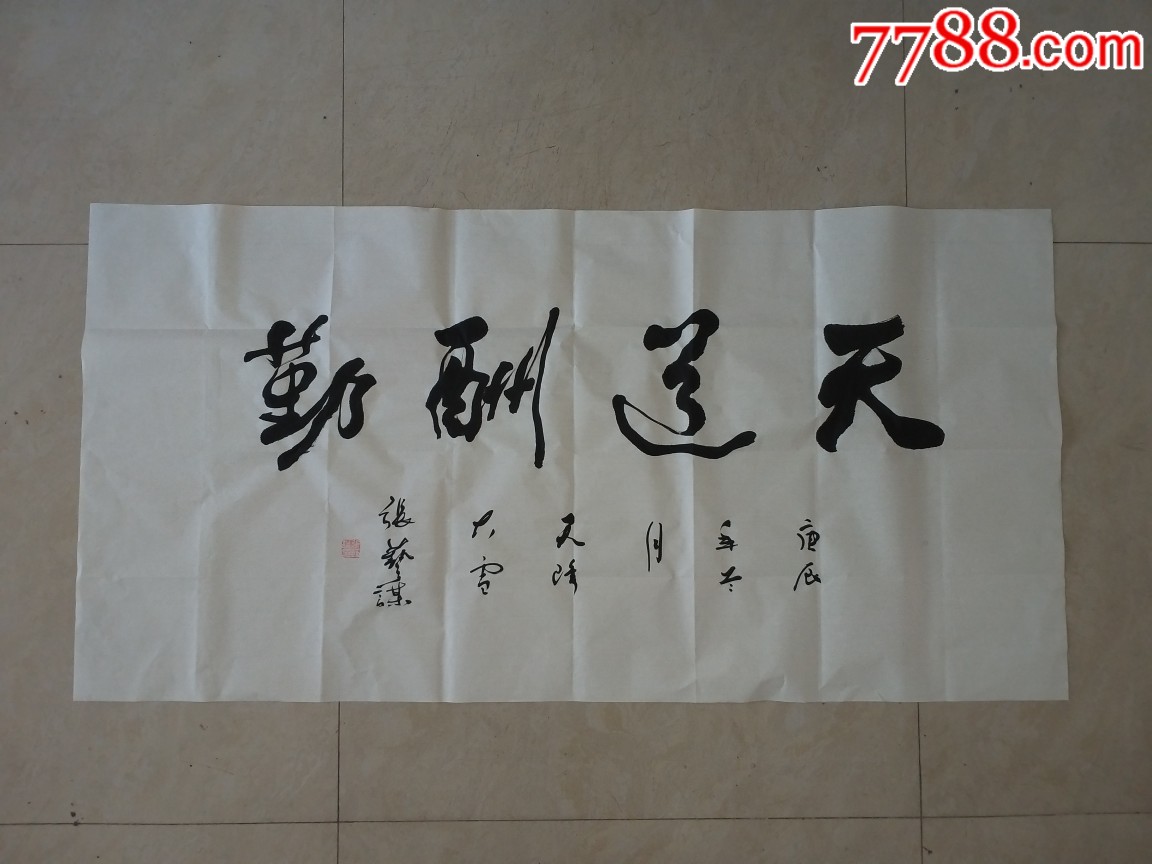 7788.com
天道酬勤
庚辰
年冬
月
天降
大雪
張藝謀